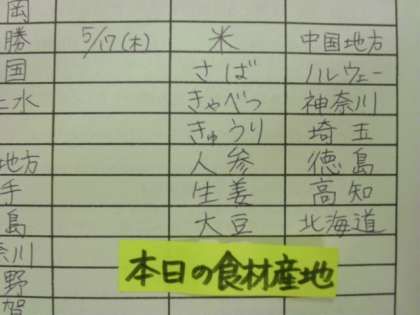 岡
勝 5/17(木) 米 中国地方
国 さば ノルウェー
水 きゃべつ 神奈川
きゅうり 埼玉
地方 人参 徳島
手 生姜 高知
島 大豆 北海道
奈川
野
賀
本日の食材産地